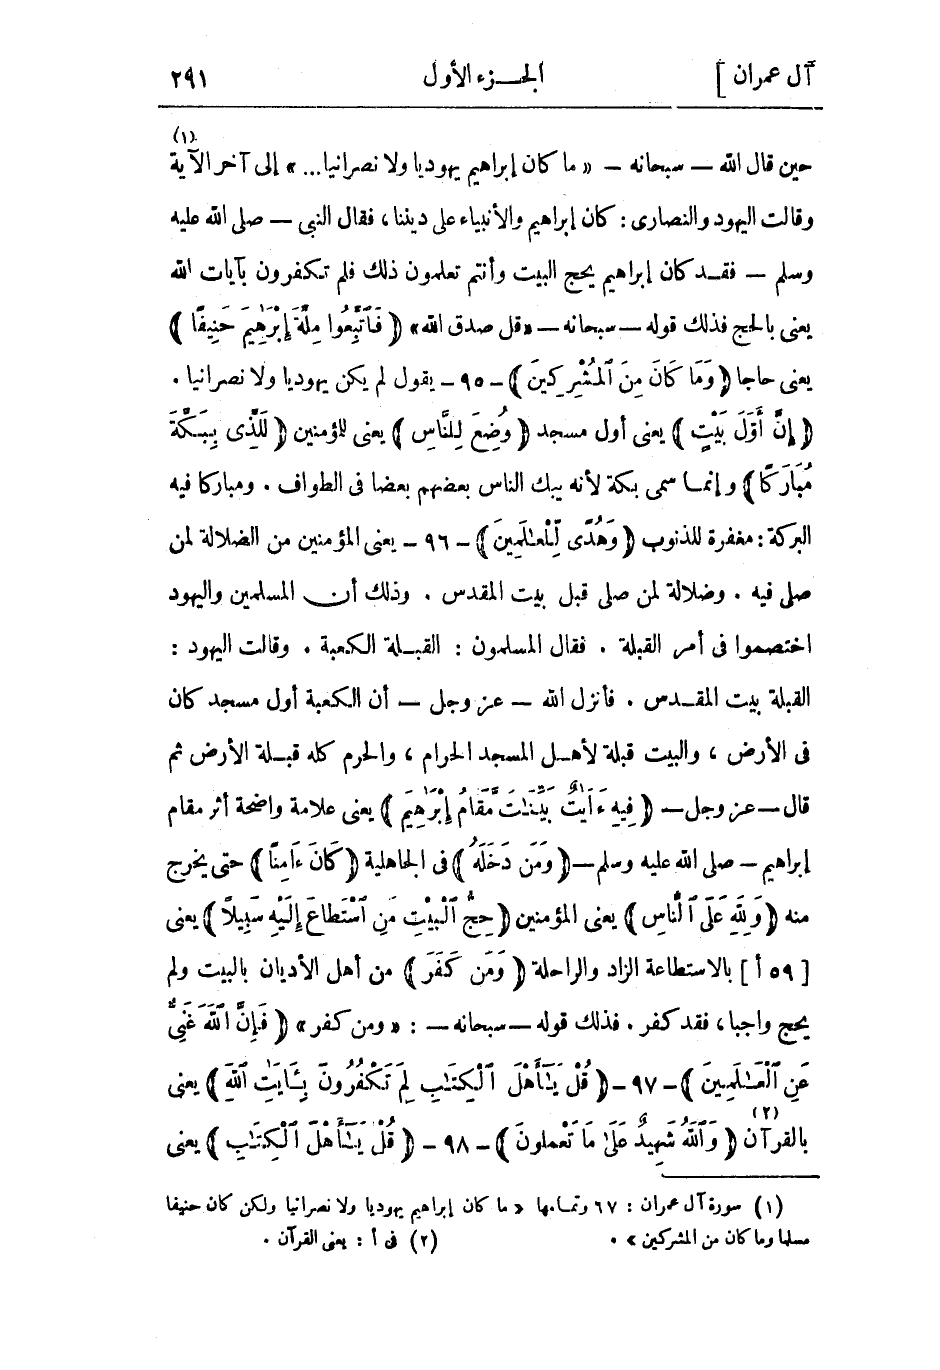 آل عمران ] الجـــزء الأول ٢٩١
(١)
حين قال الله — سبحانه — « ما كان إبراهيم يهوديا ولا نصرانيا... » إلى آخر الآية
وقالت اليهود والنصارى : كان إبراهيم والأنبياء على ديننا ، فقال النبي — صلى الله عليه
وسلم — فقـد كان إبراهيم يحج البيت وأنتم تعلمون ذلك فلم تكفرون بآيات الله
يعنى بالحج فذلك قوله — سبحانه — « قل صدق الله » ﴿ فَٱتَّبِعُوا مِلَّةَ إِبْرَٰهِيمَ حَنِيفًا ﴾
يعنى حاجا ﴿ وَمَا كَانَ مِنَ ٱلْمُشْرِكِينَ ﴾ - ٩٥ - يقول لم يكن يهوديا ولا نصرانيا .
﴿ إِنَّ أَوَّلَ بَيْتٍ ﴾ يعنى أول مسجد ﴿ وُضِعَ لِلنَّاسِ ﴾ يعنى للمؤمنين ﴿ لَلَّذِى بِبَكَّةَ
مُبَارَكًا ﴾ وإنمـا سمى بكة لأنه يبك الناس بعضهم بعضا فى الطواف . ومباركا فيه
البركة : مغفرة للذنوب ﴿ وَهُدًى لِّلْعَـٰلَمِينَ ﴾ - ٩٦ - يعنى المؤمنين من الضلالة لمن
صلى فيه . وضلالة لمن صلى قبل بيت المقدس . وذلك أن المسلمين واليهود
اختصموا فى أمر القبلة . فقال المسلمون : القبـلة الكعبة . وقالت اليهود :
القبلة بيت المقـدس . فأنزل الله — عز وجل — أن الكعبة أول مسجد كان
فى الأرض ، والبيت قبلة لأهـل المسجد الحرام ، والحرم كله قبـلة الأرض ثم
قال — عز وجل — ﴿ فِيهِ ءَايَٰتٌ بَيِّنَـٰتٌ مَّقَامُ إِبْرَٰهِيمَ ﴾ يعنى علامة واضحة أثر مقام
إبراهيم — صلى الله عليه وسلم — ﴿ وَمَن دَخَلَهُ ﴾ فى الجاهلية ﴿ كَانَ ءَامِنًا ﴾ حتى يخرج
منه ﴿ وَلِلَّهِ عَلَى ٱلنَّاسِ ﴾ يعنى المؤمنين ﴿ حِجُّ ٱلْبَيْتِ مَنِ ٱسْتَطَاعَ إِلَيْهِ سَبِيلًا ﴾ يعنى
[ ٥٩ أ ] بالاستطاعة الزاد والراحلة ﴿ وَمَن كَفَرَ ﴾ من أهل الأديان بالبيت ولم
يحج واجبا ، فقد كفر . فذلك قوله — سبحانه — : « ومن كفر » ﴿ فَإِنَّ ٱللَّهَ غَنِىٌّ
عَنِ ٱلْعَـٰلَمِينَ ﴾ - ٩٧ - ﴿ قُلْ يَـٰٓأَهْلَ ٱلْكِتَـٰبِ لِمَ تَكْفُرُونَ بِـَٔايَـٰتِ ٱللَّهِ ﴾ يعنى
بالقرآن (٢) ﴿ وَٱللَّهُ شَهِيدٌ عَلَىٰ مَا تَعْمَلُونَ ﴾ - ٩٨ - ﴿ قُلْ يَـٰٓأَهْلَ ٱلْكِتَـٰبِ ﴾ يعنى
(١) سورة آل عمران : ٦٧ وتمـامها « ما كان إبراهيم يهوديا ولا نصرانيا ولكن كان حنيفا
مسلما وما كان من المشركين » . (٢) فى أ : يعنى القرآن .